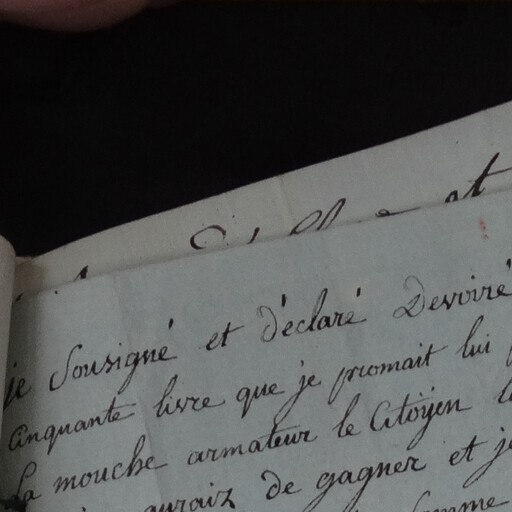 et
je Sousigné et déclaré Devoiré
Cinquante livre que je promait lui
La mouche armateur le Citoÿen
auraiz de gagner et je
somme